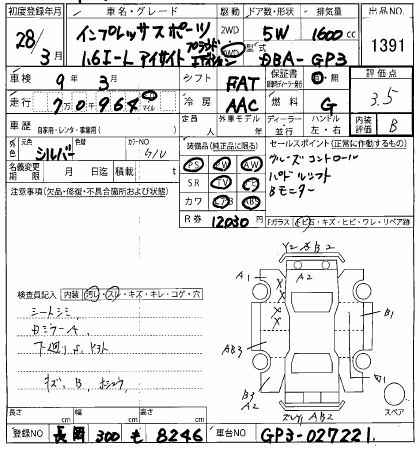 初度登録年月 車名・グレード 駆動 ドア数・形状 排気量 出品NO.
28/3月 インプレッサスポーツ 2WD 4WD 5W 1600cc 1391
1.6i-L アイサイト 型式 DBA-GP3
車検 9年 3月 シフト FAT 保証書 有・無 評価点 3.5
走行 70964 マイル 冷房 AAC 燃料 G
車歴 自家用・レンタ・事業用( ) 定員 人 外車モデル 年 ディーラー 並行 ハンドル 左・右 内装評価 B
外色 元色 シルバー 色替 カラーNO G1U
装備品(純正品に限る) セールスポイント(正常に作動するもの)
名義変更期限 月 日迄 積載 t
PS PW AW クルーズコントロール
SR TV パドルシフト
カワ ABS Bモニター
注意事項(欠品・修復・不具合箇所および状態)
R券 12030円 Fガラス トビ石・キズ・ヒビ・ワレ・リペア跡
検査員記入 内装 汚レ・スレ・キズ・キレ・コゲ・穴
シートシミ
カミラーA
下廻りS、ヤスト
キズ、B、ホシュウ
A1 A2 B1 AB3 B3 A2 AB2
スペア
長さ cm 幅 cm 高さ cm
登録NO 長岡 300 も 8246 車台NO GP3-027221